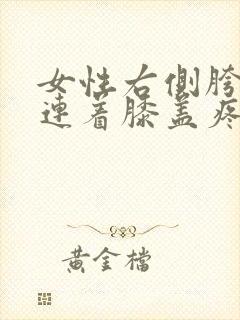 女性右側胯
連着膝盖疼
黃金檔